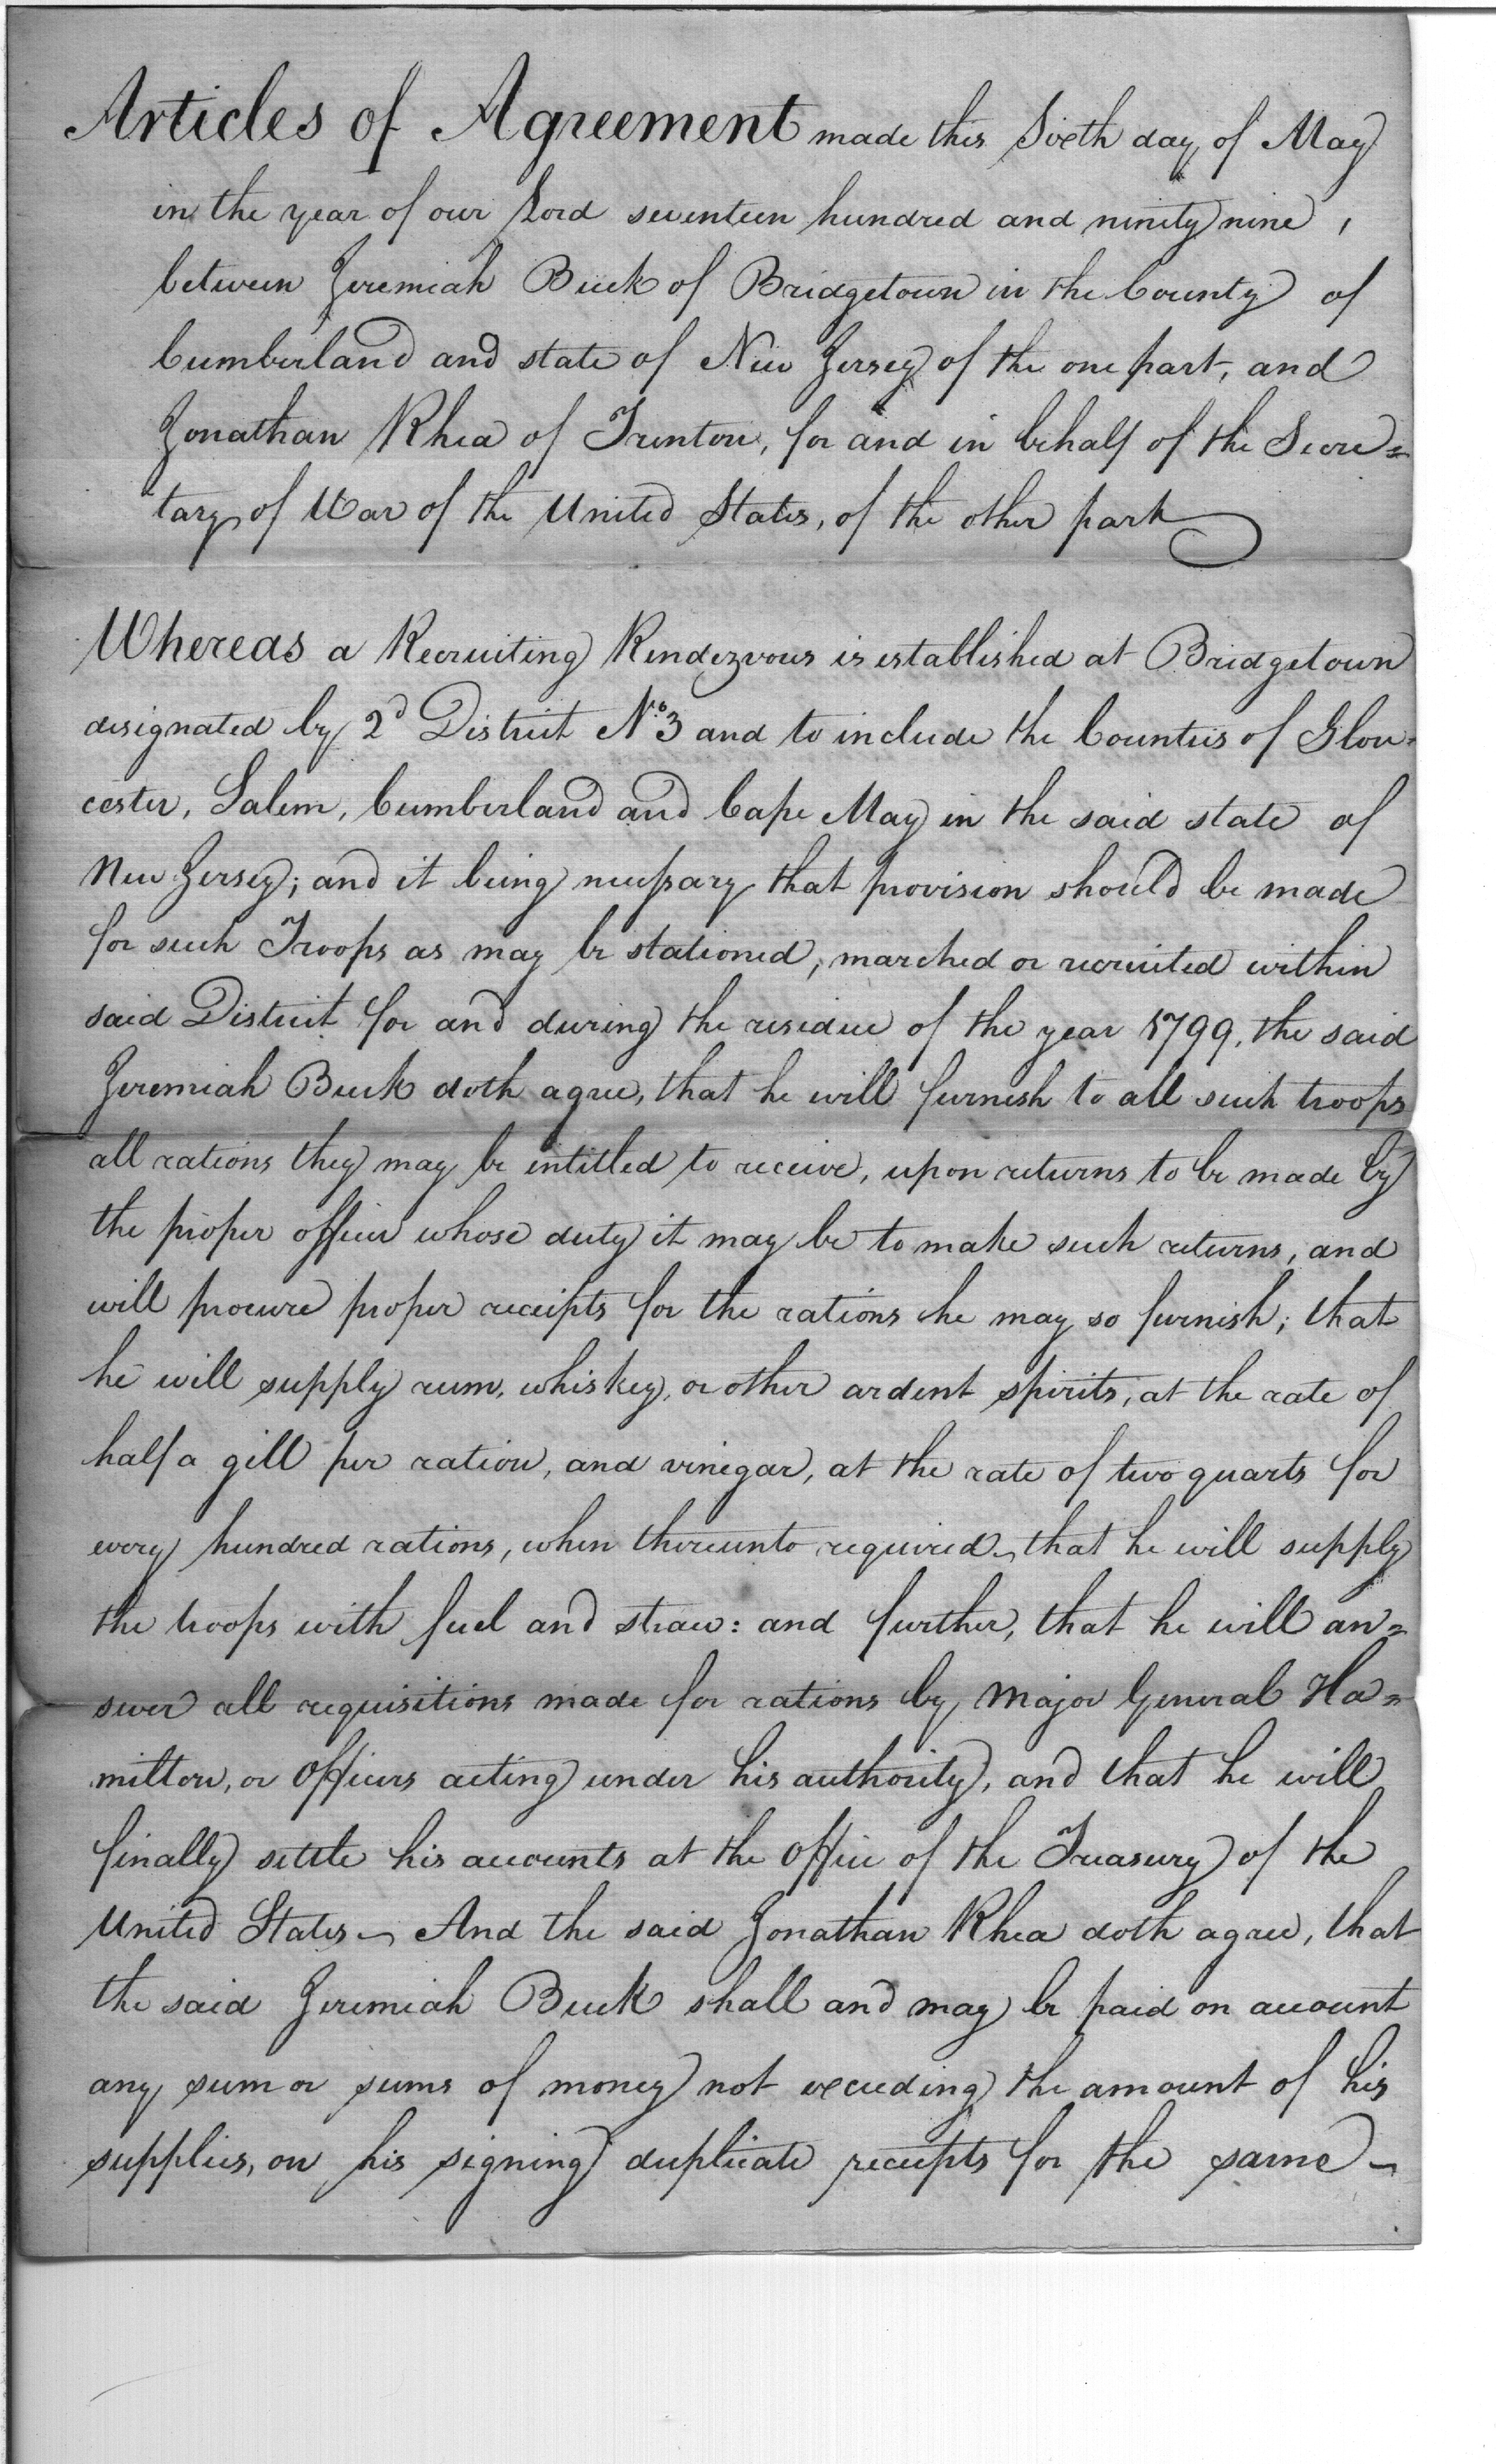 Articles of Agreement made this Sixth day of May
in the year of our Lord seventeen hundred and ninety nine,
between Jeremiah Buck of Bridgetown in the County of
Cumberland and state of New Jersey of the one part, and
Jonathan Rhea of Trenton, for and in behalf of the Secre=
tary of War of the United States, of the other part
Whereas a Recruiting Rendezvous is established at Bridgetown
designated by 2d District No. 3 and to include the Counties of Glou-
cester, Salem, Cumberland and Cape May in the said state of
New Jersey; and it being necessary that provision should be made
for such Troops as may be stationed, marched or recruited within
said District for and during the residue of the year 1799, the said
Jeremiah Buck doth agree, that he will furnish to all such troops
all rations they may be intitled to receive, upon returns to be made by
the proper officer whose duty it may be to make such returns, and
will procure proper receipts for the rations he may so furnish; that
he will supply rum, whiskey, or other ardent spirits, at the rate of
half a gill per ration, and vinegar, at the rate of two quarts for
every hundred rations, when thereunto required ~ that he will supply
the troops with fuel and straw: and further, that he will an=
swer all requisitions made for rations by Major General Ha=
milton, or Officers acting under his authority, and that he will
finally settle his accounts at the Office of the Treasury of the
United States ~ And the said Jonathan Rhea doth agree, that
the said Jeremiah Buck shall and may be paid on account
any sum or sums of money not exceeding the amount of his
supplies, on his signing duplicate receipts for the same ~